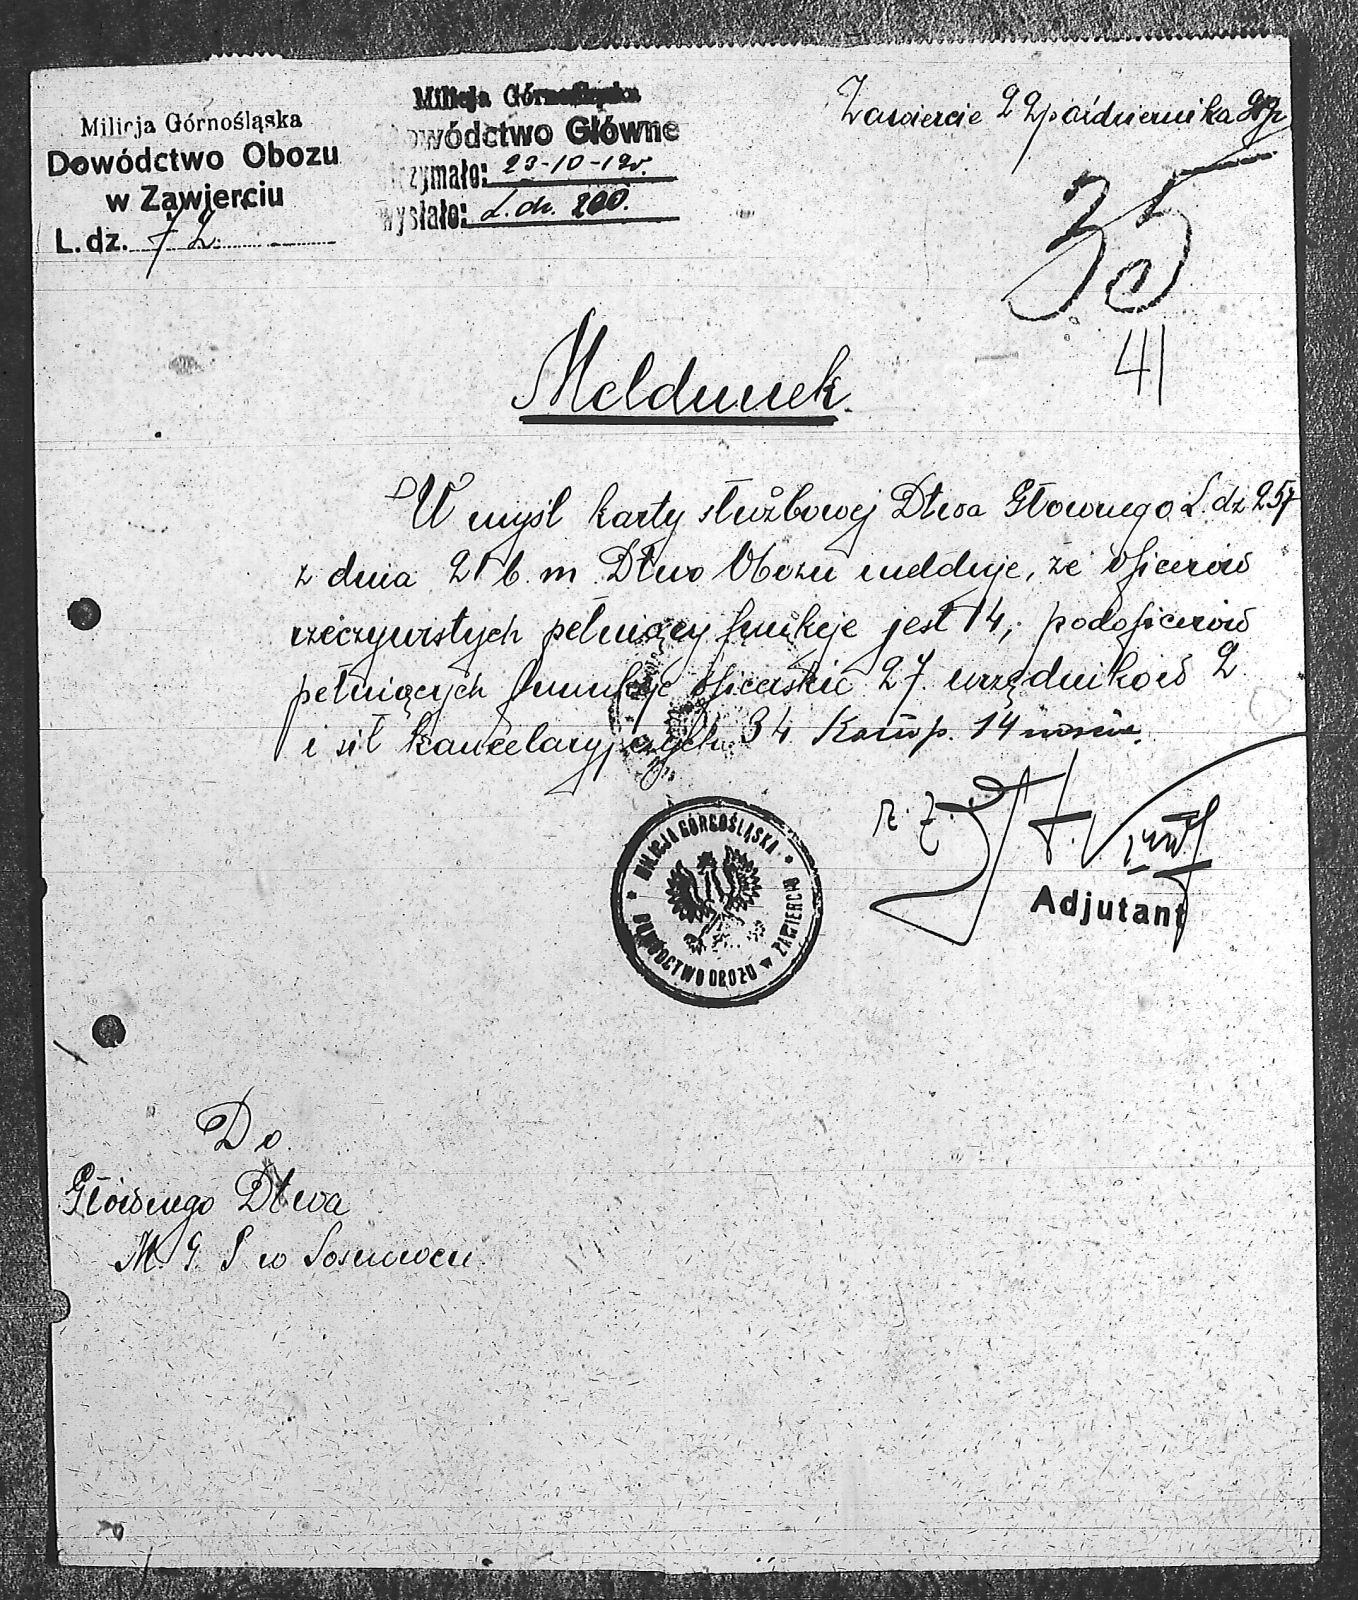 Milicja Górnośląska
Dowództwo Obozu
w Zawierciu
L. dz. 72
Milicja Górnośląska
Dowództwo Główne
otrzymało: 23-10-19r.
wysłało: L. dz. 260.
Zawiercie 22 października
35
41
Meldunek.
W myśl karty służbowej Dtwa Głownego L. dz 257
z dnia 21 b. m. Dtwo Obozu melduje, że oficerów
rzeczywistych pełniący funkcje jest 14, podoficerów
pełniących funkcje oficerskie 27. urzędników 2
i sił kancelaryjnych 34 Komp. 14
r. z.
Adjutant
MILICJA GÓRNOŚLĄSKA * DOWÓDZTWO OBOZU w ZAWIERCIU *
Do
Głównego Dtwa
M. G. S w Sosnowcu.